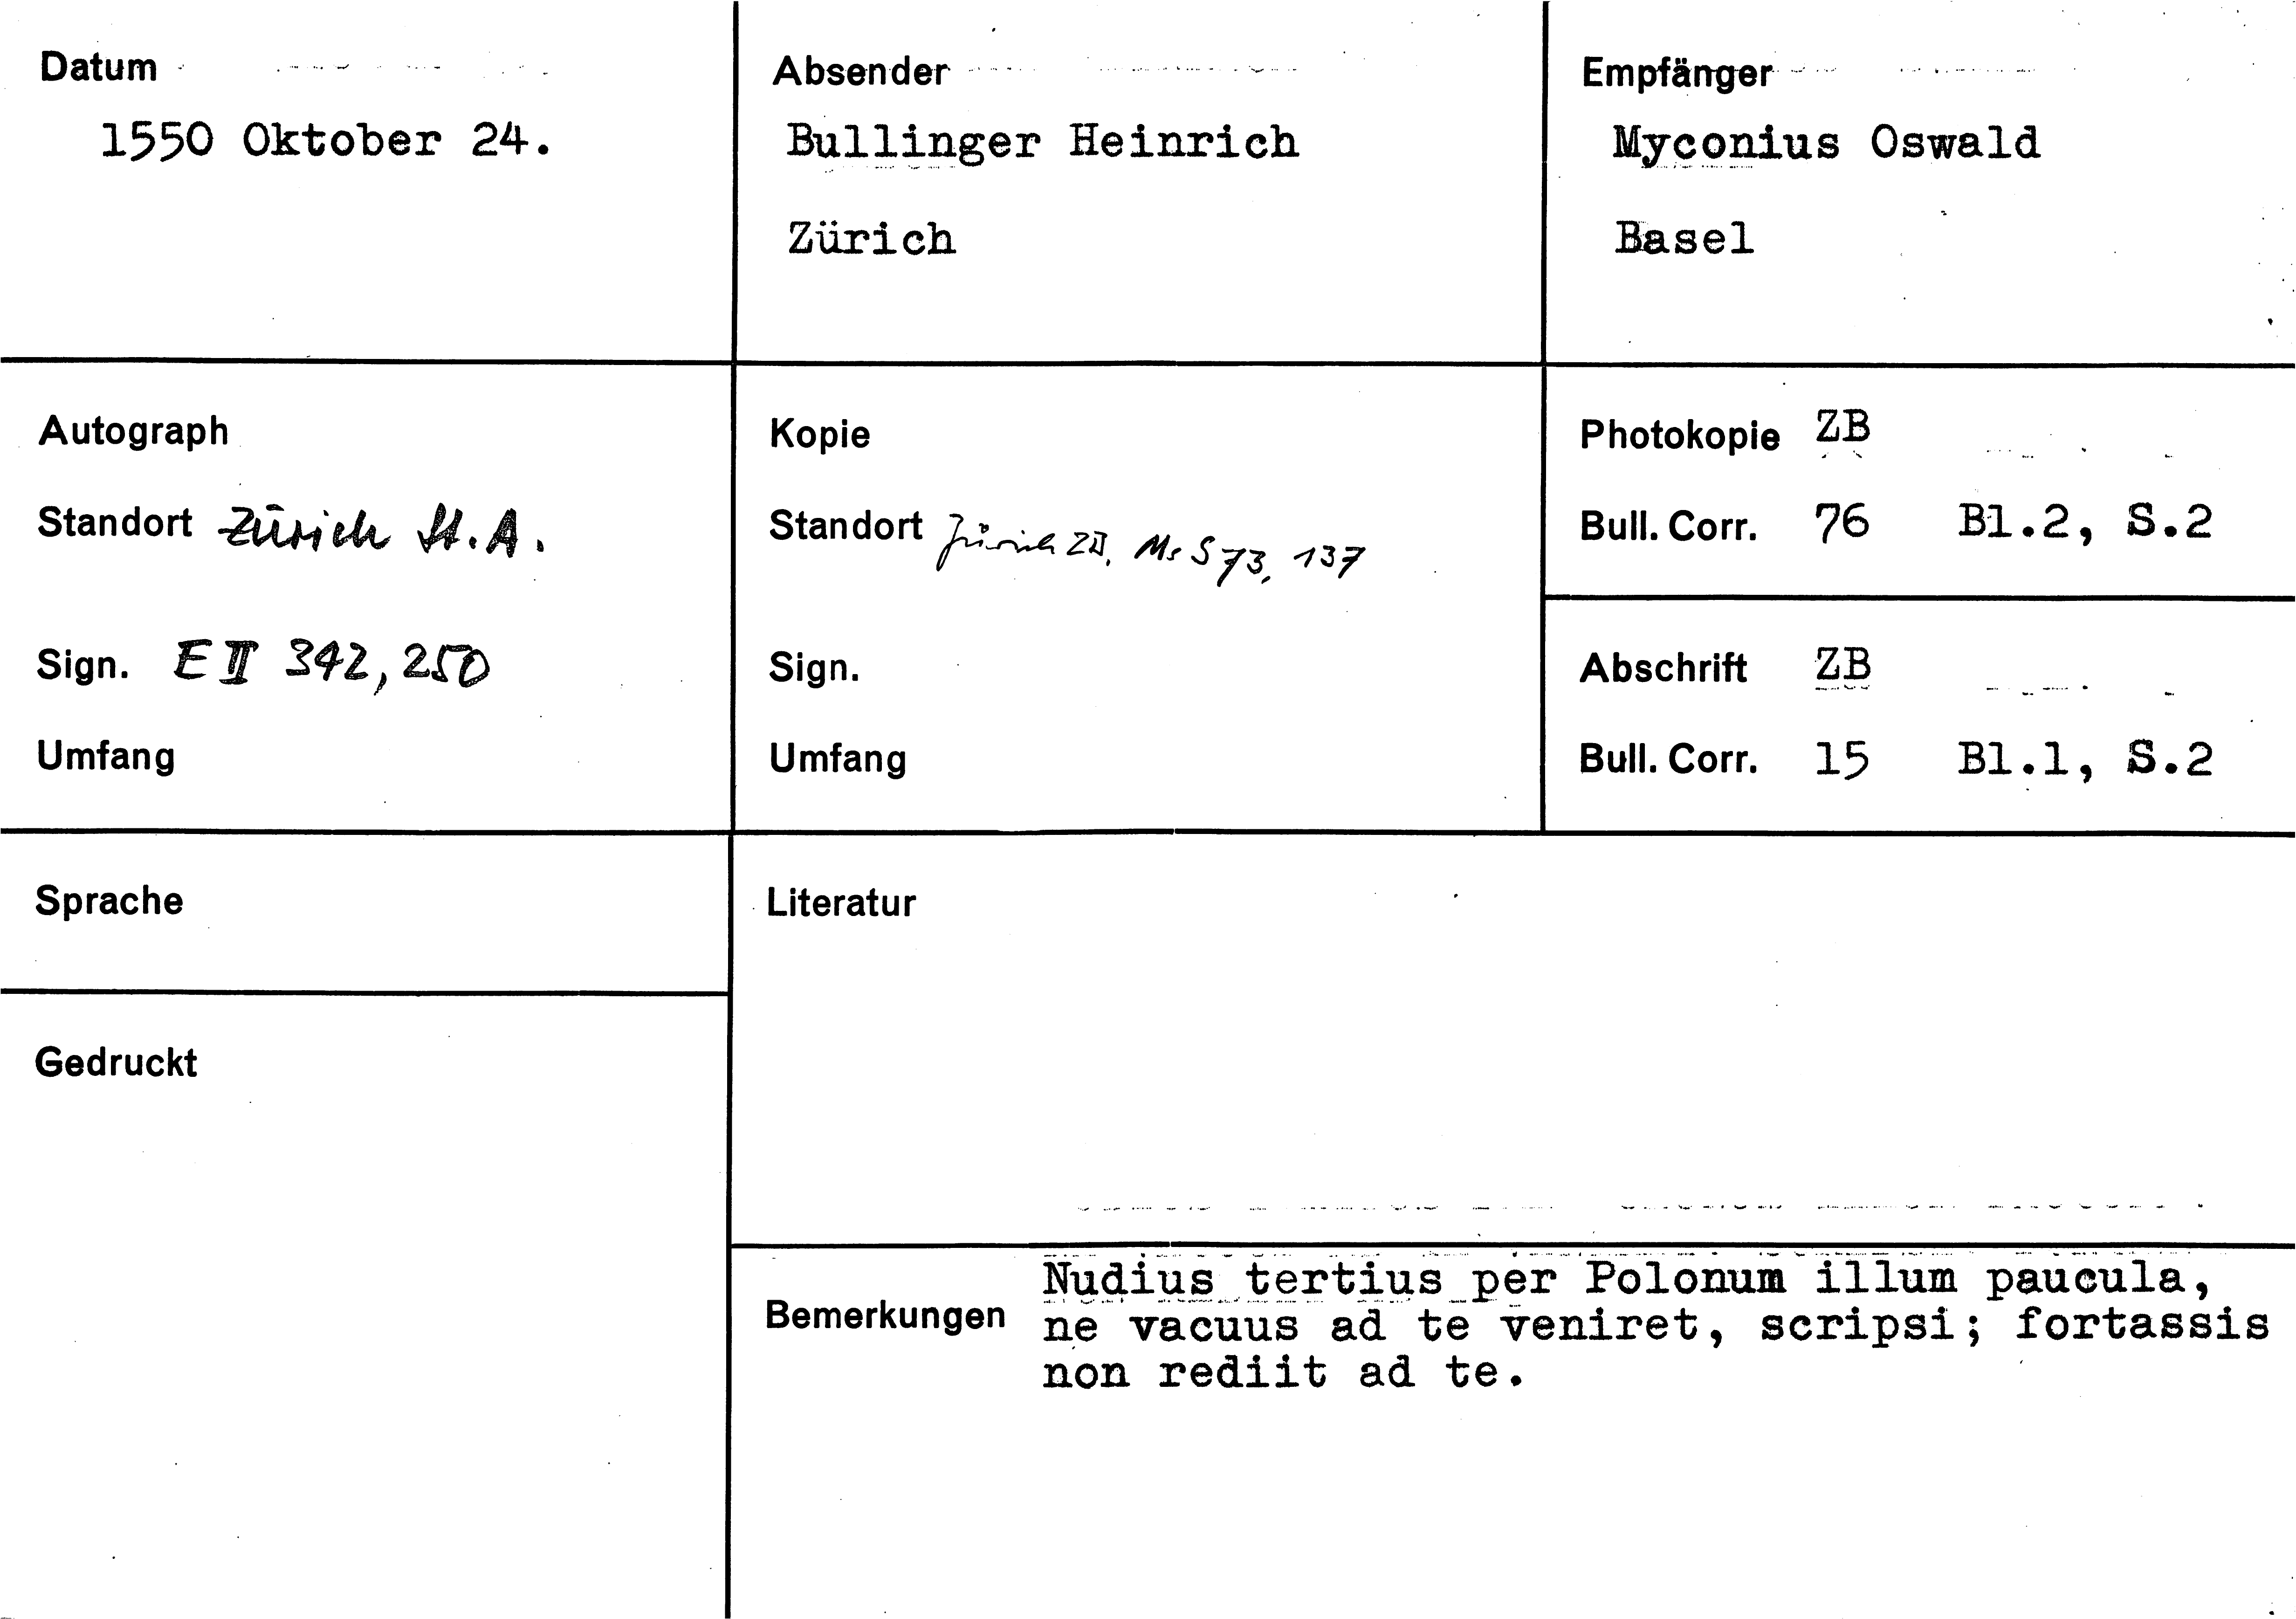 Datum
1550 Oktober 24.
Absender
Bullinger Heinrich
Zürich
Empfänger
Myconius Oswald
Basel
Autograph
Standort Zürich St.A.
Sign. E II 342, 250
Umfang
Kopie
Standort Zürich ZB, Ms S 73, 137
Sign.
Umfang
Photokopie ZB
Bull. Corr. 76 Bl.2, S.2
Abschrift ZB
Bull. Corr. 15 Bl.1, S.2
Sprache
Gedruckt
Literatur
Bemerkungen
Nudius tertius per Polonum illum paucula,
ne vacuus ad te veniret, scripsi; fortassis
non rediit ad te.